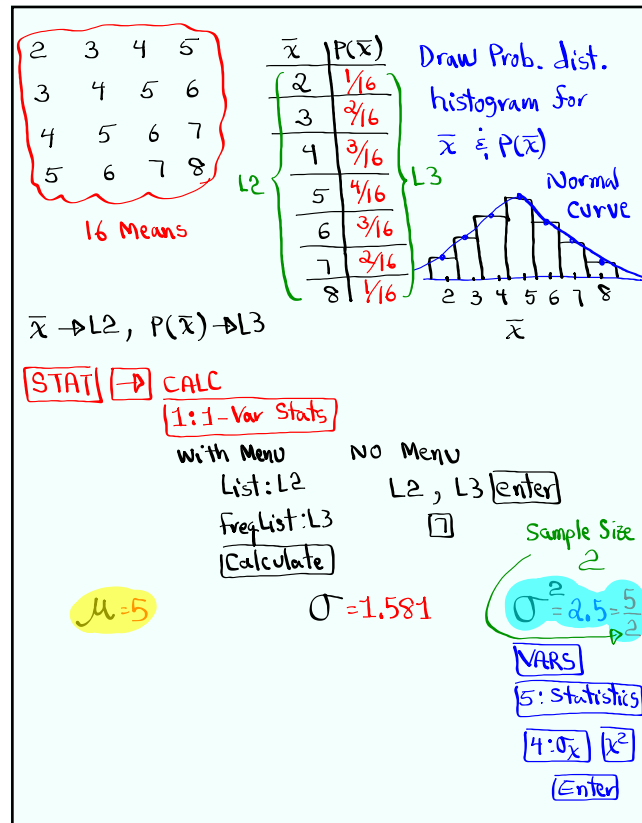 2 3 4 5
3 4 5 6
4 5 6 7
5 6 7 8
16 Means
x̄ P(x̄)
2 1/16
3 2/16
4 3/16
5 4/16
6 3/16
7 2/16
8 1/16
L2
L3
Draw Prob. dist.
histogram for
x̄ & P(x̄)
Normal
Curve
2 3 4 5 6 7 8
x̄
x̄ → L2, P(x̄) → L3
STAT → CALC
1:1-Var Stats
With Menu No Menu
List:L2 L2, L3 enter
FreqList:L3
Calculate
Sample Size
2
μ=5 σ=1.581 σ²=2.5=5/2
VARS
5:Statistics
4:σx x²
Enter